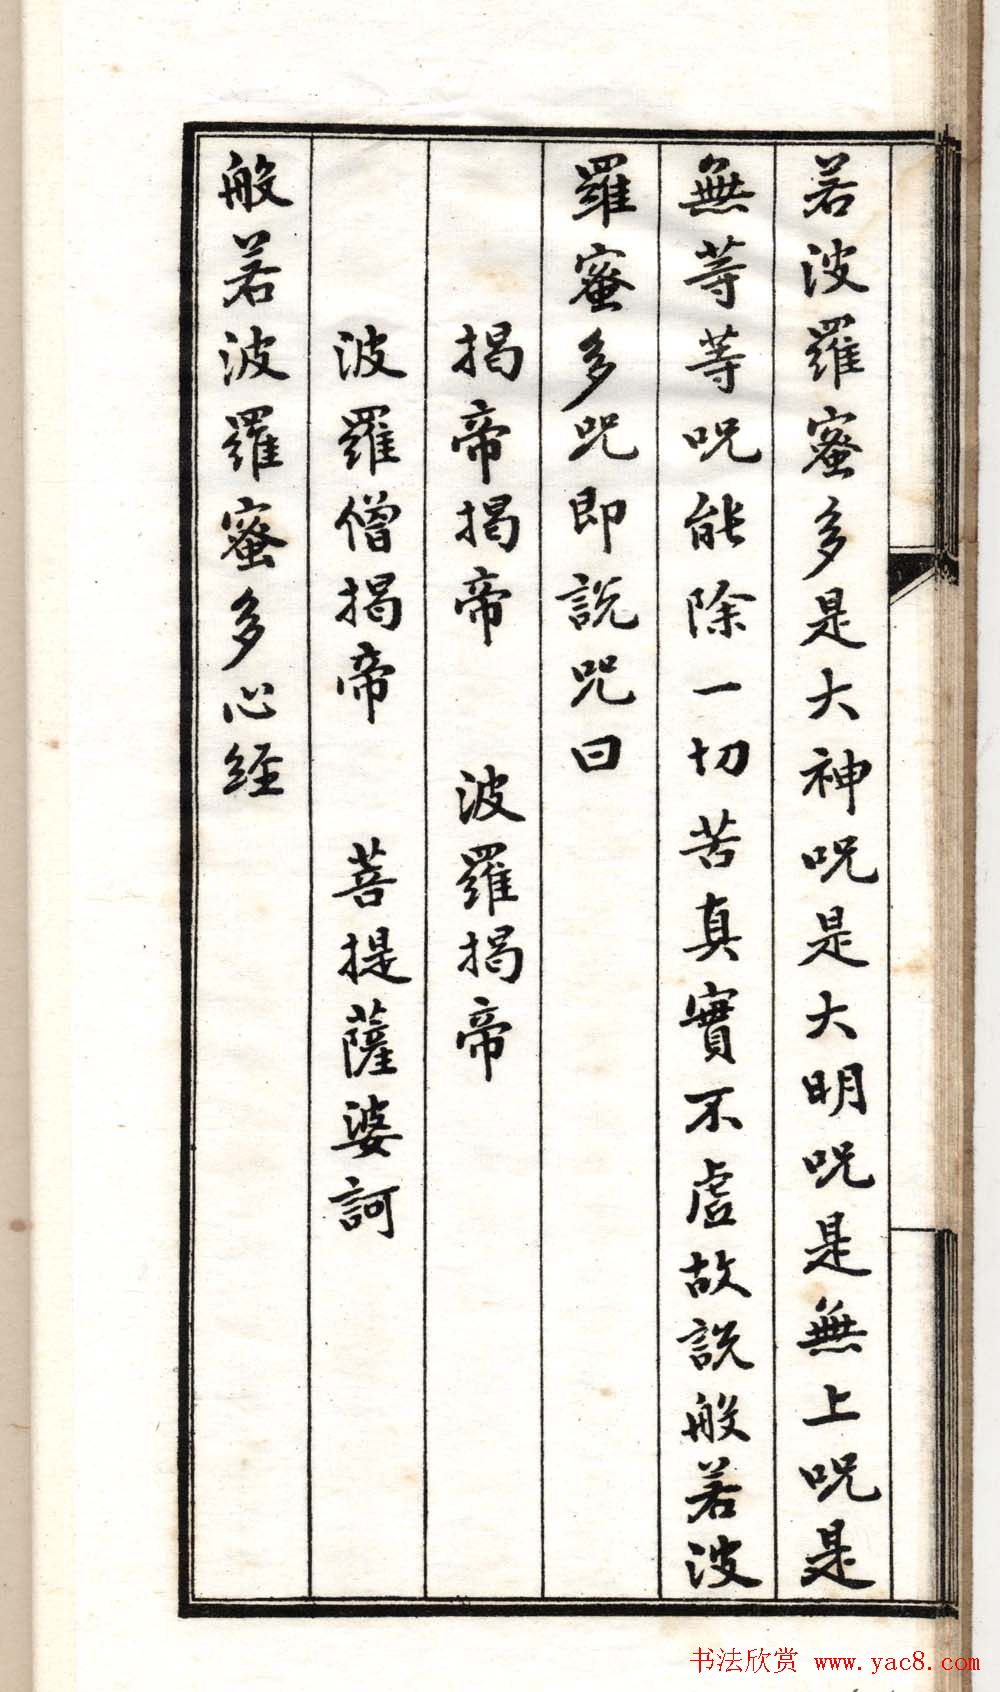 若波羅蜜多是大神呪是大明呪是無上呪是
無等等呪能除一切苦真實不虛故説般若波
羅蜜多呪即説呪曰
揭帝揭帝 波羅揭帝
波羅僧揭帝 菩提薩婆訶
般若波羅蜜多心経
书法欣赏 www.yac8.com